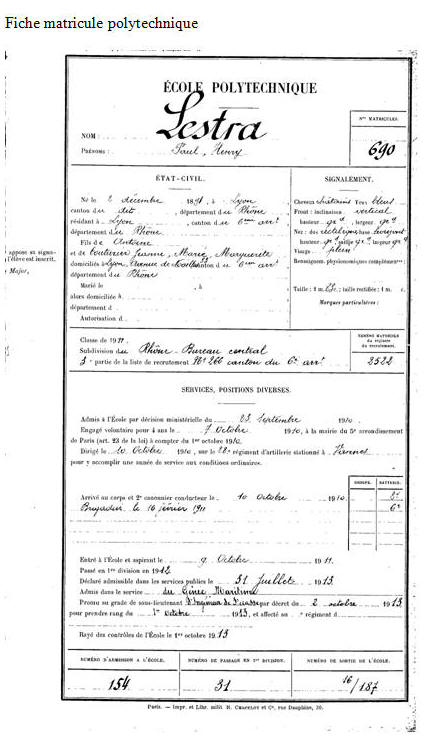 Fiche matricule polytechnique
ÉCOLE POLYTECHNIQUE
Nos MATRICULES.
NOM : Lestra
PRÉNOMS : Paul, Henry
690
ÉTAT-CIVIL.
SIGNALEMENT.
Né le 2 décembre 1891, à Lyon
canton du dit, département du Rhône
résidant à Lyon, canton du 6ème arrt
département du Rhône
Fils de Antoine
et de Jeanne, Marie, Marguerite
domiciliés à Lyon, canton du 6ème arrt
département du Rhône
Marié le , à
alors domiciliée à
département d
Autorisation d
Cheveux châtains Yeux bleus
Front : inclinaison vertical
hauteur gd, largeur gd
Nez : dos rectiligne base
hauteur gd saillie gd largeur gd
Visage plein
Renseignem. physionomiques complémentres
Taille : 1 m. ; taille rectifiée : 1 m. c.
Marques particulières :
appose sa signa-
l'élève est inscrit.
Major,
Classe de 1911
Subdivision du Rhône - Bureau central
partie de la liste de recrutement No 260 canton du 6e arrt
NUMÉRO MATRICULE
du registre
du recrutement.
2522
SERVICES, POSITIONS DIVERSES.
Admis à l'École par décision ministérielle du 23 Septembre 1910.
Engagé volontaire pour 4 ans le 7 Octobre 1910, à la mairie du 5e arrondissement
de Paris (art. 23 de la loi) à compter du 1er octobre 1910.
Dirigé le 10 Octobre 1910, sur le 28e régiment d'artillerie stationné à Vannes
pour y accomplir une année de service aux conditions ordinaires.
GROUPE. BATTERIE.
Arrivé au corps et 2e canonnier conducteur le 10 octobre 1910 2e
Brigadier le 16 février 1911 6e
Entré à l'École et aspirant le 9 Octobre 1911.
Passé en 1re division en 1912
Déclaré admissible dans les services publics le 31 Juillet 1913.
Admis dans le service du Génie Maritime
Promu au grade de sous-lieutenant par décret du 2 octobre 1913
pour prendre rang du 1er Octobre 1913, et affecté au e régiment d
Rayé des contrôles de l'École le 1er octobre 1913
NUMÉRO D'ADMISSION A L'ÉCOLE.
NUMÉRO DE PASSAGE EN 1re DIVISION.
NUMÉRO DE SORTIE DE L'ÉCOLE.
154
31
16/187
Paris. — Impr. et Libr. milit. R. CHAPELOT et Ce, rue Dauphine, 30.